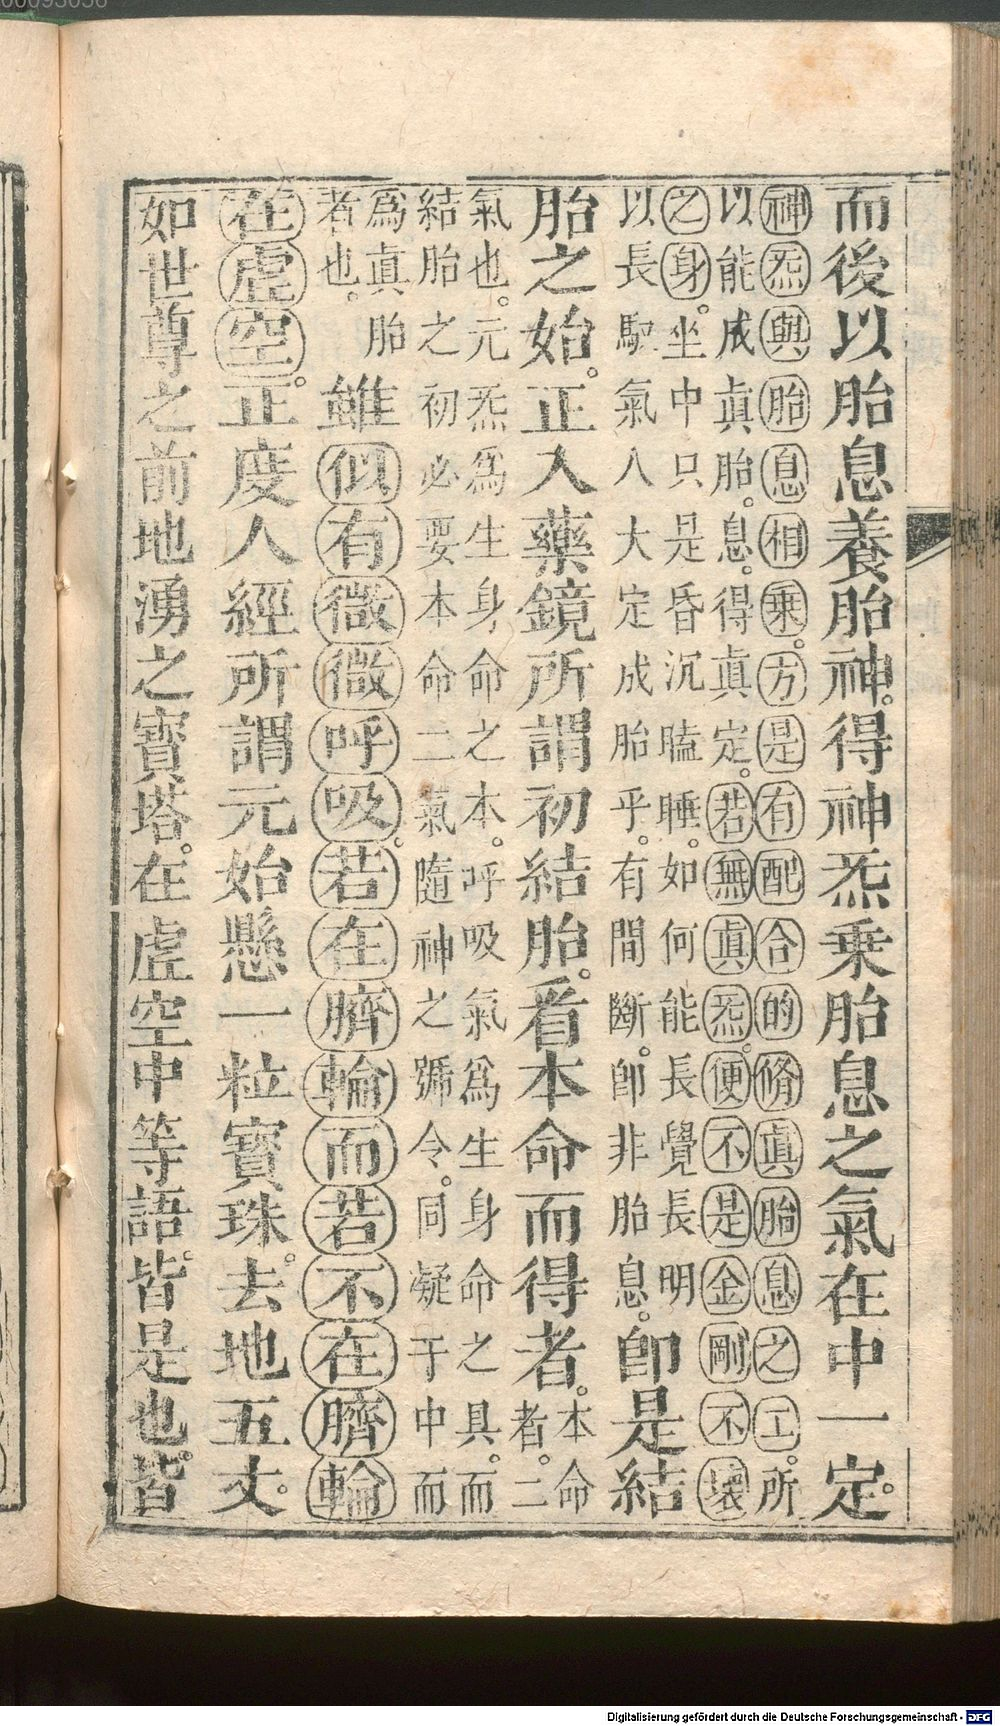 00095056
而後以胎息養胎神。得神炁乗胎息之氣在中一定。
神炁與胎息相乗。方是有配合的脩真胎息之工。所
以能成真胎。息。得真定。若無真炁。便不是金剛不壞
之身。坐中只是昏沉瞌睡。如何能長覺長明
以長馭氣入大定成胎乎。有間斷。卽非胎息。
卽是結
胎之始。正入藥鏡所謂初結胎。看本命而得者。
本命
者。二
氣也。元炁為生身命之本。呼吸氣為生身命之具。而
結胎之初必要本命二氣隨神之號令。同凝于中而
為真胎
者也。
雖似有微微呼吸。若在臍輪而若不在臍輪
在虛空。正度人經所謂元始懸一粒寶珠。去地五丈。
如世尊之前地湧之寶塔。在虛空中等語。皆是也。皆
Digitalisierung gefördert durch die Deutsche Forschungsgemeinschaft - DFG